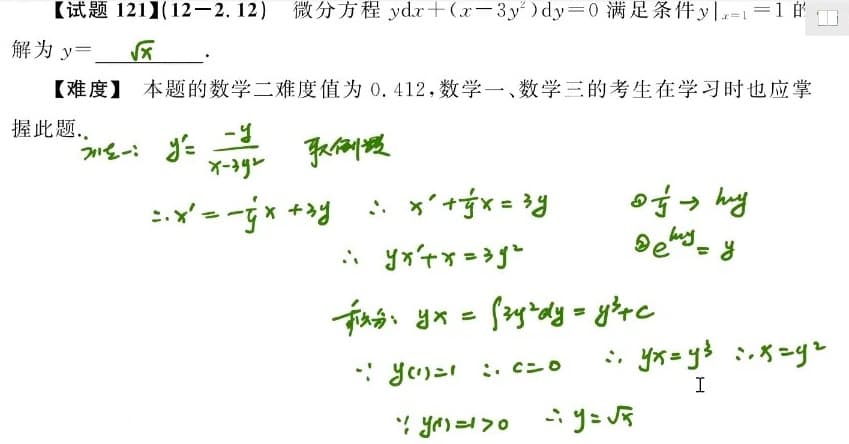 【试题 121】(12-2. 12) 微分方程 ydx+(x-3y²)dy=0 满足条件y|ₓ₌₁=1 的
解为 y= √x .
【难度】 本题的数学二难度值为 0. 412,数学一、数学三的考生在学习时也应掌
握此题.
法一: y'= -y/(x-3y²) 取倒数
∴x'=-1/y x+3y ∴ x'+1/y x=3y ①1/y → lny
∴ yx'+x=3y² ②e^{lny}=y
积分: yx = ∫3y²dy = y³+c
∵ y(1)=1 ∴ c=0 ∴ yx=y³ ∴x=y²
∵ y(1)=1>0 ∴y=√x